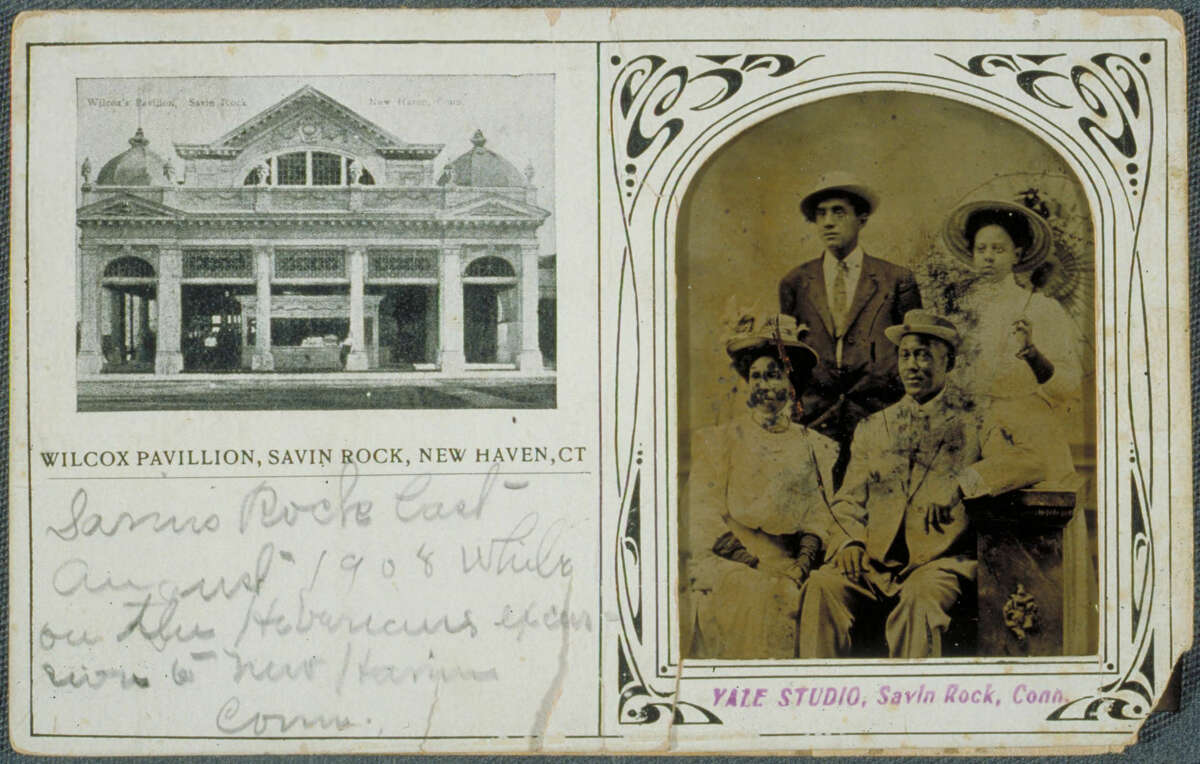 Wilcox's Pavilion, Savin Rock New Haven, Conn.
WILCOX PAVILLION, SAVIN ROCK, NEW HAVEN, CT
Rock Last
August 1908 While
on the Hibernians excur-
sion to New Haven
Conn.
YALE STUDIO, Savin Rock, Conn.